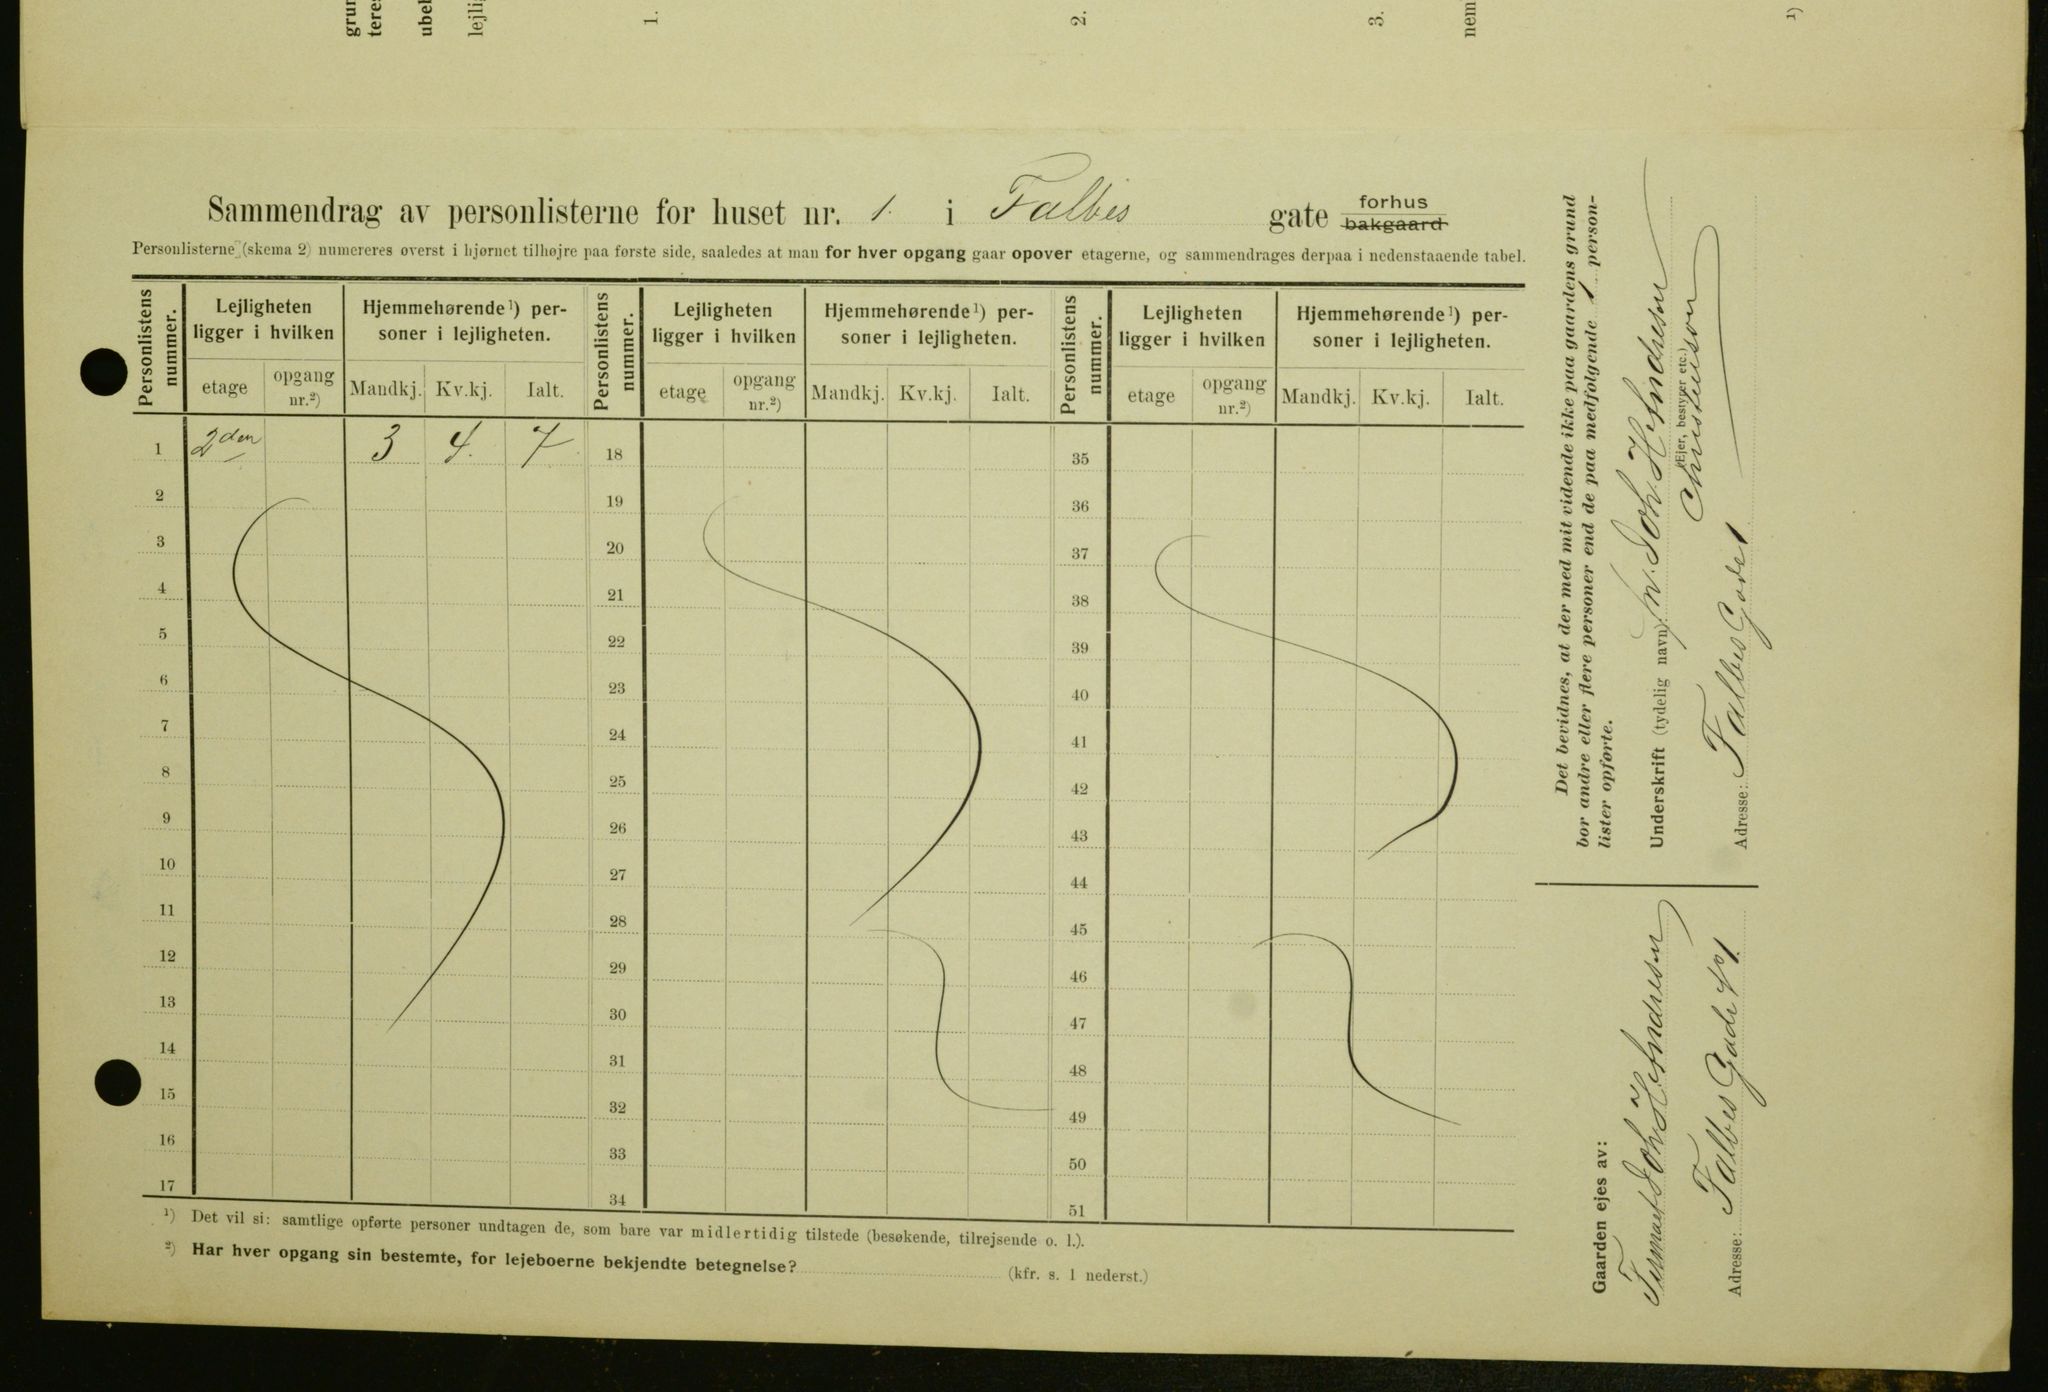 grun
teres
ubeh
lejlig
1.
2.
3.
nem
1)
Sammendrag av personlisterne for huset nr. 1. i Falbes gate forhus
bakgaard
Personlisterne (skema 2) numereres øverst i hjørnet tilhøjre paa første side, saaledes at man for hver opgang gaar opover etagerne, og sammendrages derpaa i nedenstaaende tabel.
Personlistens nummer. Lejligheten ligger i hvilken Hjemmehørende 1) personer i lejligheten. Personlistens nummer. Lejligheten ligger i hvilken Hjemmehørende 1) personer i lejligheten. Personlistens nummer. Lejligheten ligger i hvilken Hjemmehørende 1) personer i lejligheten.
etage opgang nr.2) Mandkj. Kv.kj. Ialt. etage opgang nr.2) Mandkj. Kv.kj. Ialt. etage opgang nr.2) Mandkj. Kv.kj. Ialt.
1 2den 3 4. 7 18 35
2 19 36
3 20 37
4 21 38
5 22 39
6 23 40
7 24 41
8 25 42
9 26 43
10 27 44
11 28 45
12 29 46
13 30 47
14 31 48
15 32 49
16 33 50
17 34 51
1) Det vil si: samtlige opførte personer undtagen de, som bare var midlertidig tilstede (besøkende, tilrejsende o. l.).
2) Har hver opgang sin bestemte, for lejeboerne bekjendte betegnelse? (kfr. s. 1 nederst.)
Det bevidnes, at der med mit vidende ikke paa gaardens grund
bor andre eller flere personer end de paa medfølgende 1 person-
lister opførte.
Underskrift (tydelig navn): Joh. H. Andresen
(Ejer, bestyrer etc.)
Christenson
Adresse: Falbes Gade 1
Gaarden ejes av:
Firmaet Joh. H. Andresen
Adresse: Falbes Gade No 1.